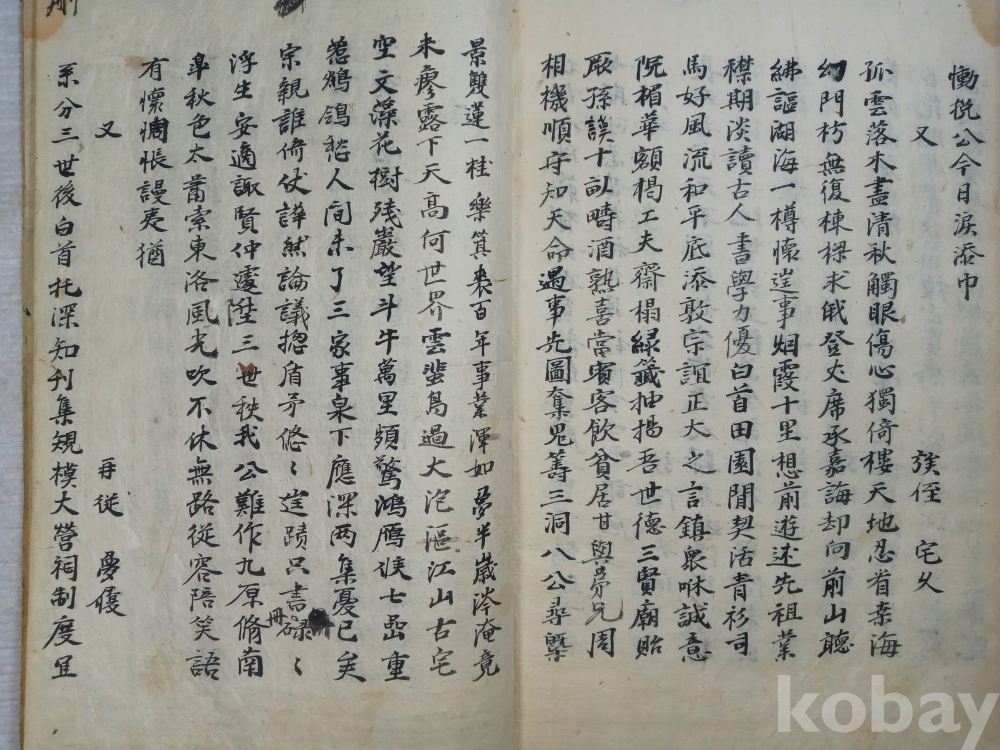 慟挽公今日淚添巾
又 族侄 宅久
孤雲落木盡清秋觸眼傷心獨倚樓天地忍看桒海
幻門朽無復棟樑求俄登丈席承嘉誨却向前山聽
紼謳湖海一樽懷迬事烟霞十里想前遊述先祖業
襟期淡讀古人書學力優白首田園閒契活青衫司
馬好風流和平底添敦宗誼正大之言鎮衆咻誠意
院楣華額揭工夫齋榻綠籤抽揚吾世德三賢廟貽
厥孫謨十畝疇酒熟喜當賓客飲貧居甘與弟兄周
相機順守知天命遇事先圖奪鬼籌三洞八公尋槩
景雙蓮一桂樂箕裘百年事業渾如夢半歲沴淹竟
未瘳露下天高何世界雲蜚鳥過大泡漚江山古宅
空文藻花樹殘巖望斗牛萬里頻驚鴻鴈侯七峀重
惹鶺鴒愁人間未了三家事泉下應深兩集憂已矣
宗親誰倚仗譁然論議摠盾矛悠〻迬蹟只書碌〻
冊
浮生安適諏賢仲遽陞三世秩我公難作九原脩南
阜秋色太蕭索東洛風光吹不休無路從容陪笑語
有懷惆悵謾夷猶
又 再從 夢優
系分三世後白首托深知刊集規模大營祠制度宜
kobay